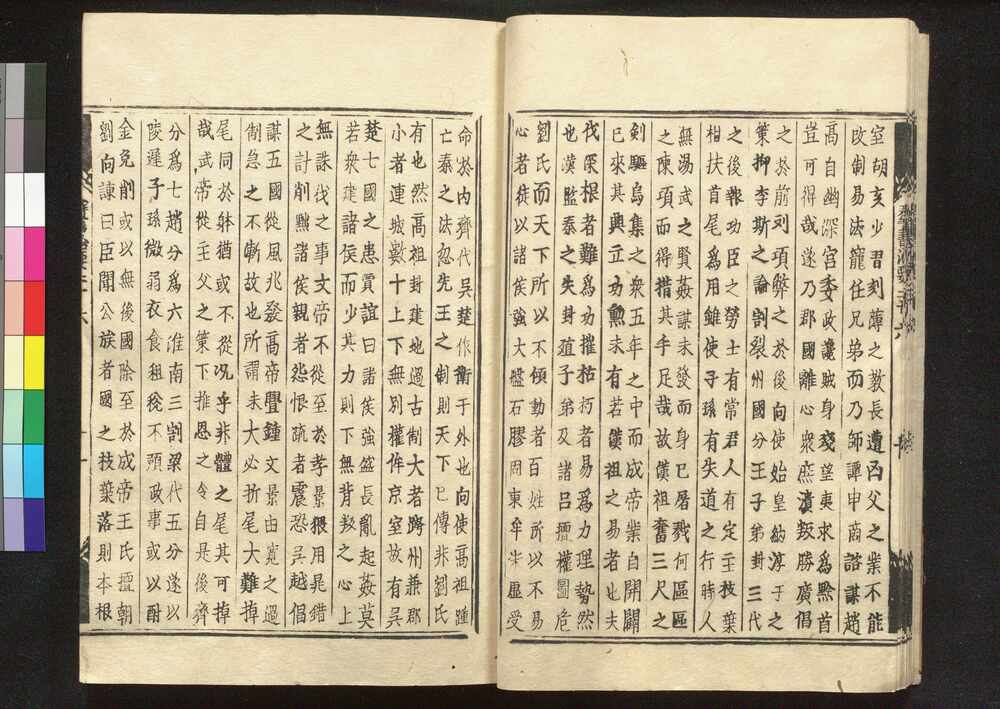 室胡亥少習刻薄之教長遵凶父之業不能
改制易法寵任兄弟而乃師譚申商諮謀趙
高自幽深宮委政讒賊身殘望夷求爲黔首
豈可得哉遂乃郡國離心衆庶潰叛勝廣倡
之於前劉項斃之於後向使始皇納淳于之
策抑李斯之論割裂州國分王子弟封三代
之後報功臣之勞士有常君人有定主枝葉
相扶首尾爲用雖使子孫有失道之行時人
無湯武之賢姦謀未發而身已屠戮何區區
之陳項而得措其手足哉故漢祖奮三尺之
劍驅烏集之衆五年之中而成帝業自開闢
已來其興立功勳未有若漢祖之易者也夫
伐深根者難爲功摧枯朽者易爲力理勢然
也漢監秦之失封殖子弟及諸呂擅權圖危
劉氏而天下所以不傾動者百姓所以不易
心者徒以諸侯強大盤石膠固東牟朱虛受
命於內齊代吳楚作衛于外也向使高祖踵
亡秦之法忽先王之制則天下已傳非劉氏
有也然高祖封建地過古制大者跨州兼郡
小者連城數十上下無別權侔京室故有吳
楚七國之患賈誼曰諸侯強盛長亂起姦莫
若衆建諸侯而少其力則下無背叛之心上
無誅伐之事文帝不從至於孝景猥用晁錯
之計削黜諸侯親者怨恨疏者震恐吳越倡
謀五國從風兆發高帝釁鍾文景由寬之過
制急之不漸故也所謂末大必折尾大難掉
尾同於躰猶或不從况乎非體之尾其可掉
哉武帝從主父之策下推恩之令自是後齊
分爲七趙分爲六淮南三割梁代五分遂以
陵遲子孫微弱衣食租稅不預政事或以酎
金免削或以無後國除至於成帝王氏擅朝
劉向諫曰臣聞公族者國之枝葉落則本根